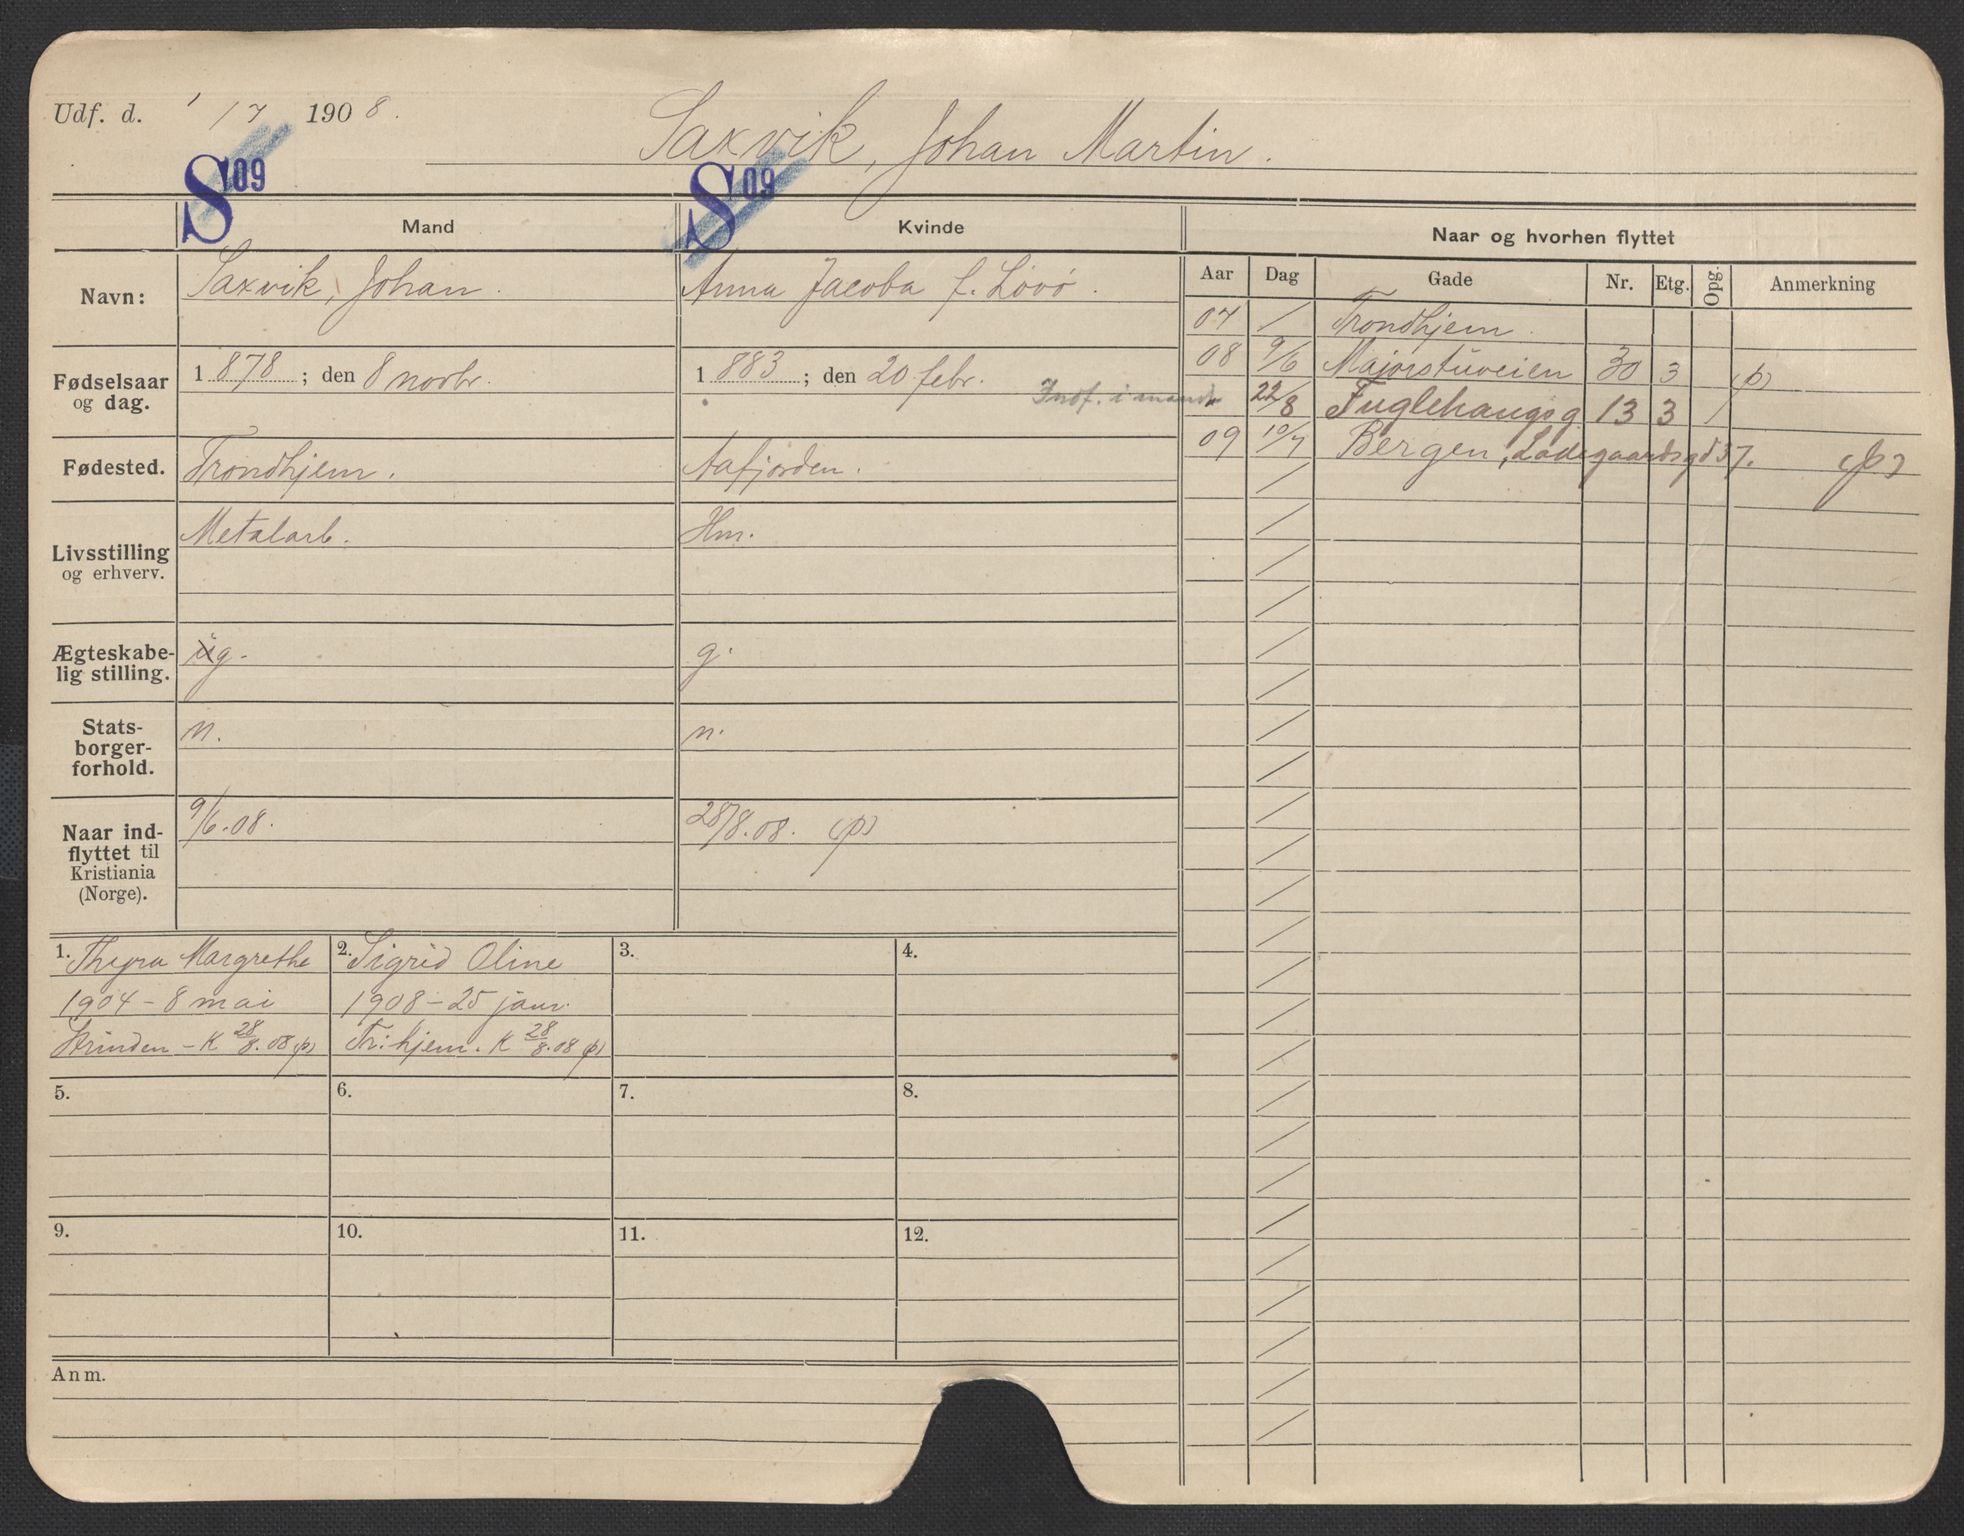 Udf. d. 1/7 1908.
Saxvik, Johan Martin.
S 09
S 09
Mand
Kvinde
Navn:
Saxvik, Johan.
Anna Jacoba f. Lövö.
Fødselsaar og dag.
1 878 ; den 8 novbr.
1 883 ; den 20 febr.
Indf. i mands
Fødested.
Trondhjem.
Aafjorden.
Livsstilling og erhverv.
Metalarb.
Hm.
Ægteskabe-
lig stilling.
g.
g.
Stats-
borger-
forhold.
n.
n.
Naar ind-
flyttet til
Kristiania
(Norge).
9/6.08.
28/8.08. (p)
1. Thyra Margrethe
1904 – 8 mai
Strinden – K 28/8.08 (p)
2. Sigrid Oline
1908 – 25 janr.
Tr:hjem. K 28/8.08 (p)
3.
4.
5.
6.
7.
8.
9.
10.
11.
12.
Anm.
Naar og hvorhen flyttet
Aar Dag Gade Nr. Etg. Opg. Anmerkning
07 / Trondhjem.
08 9/6 Majorstuveien 30 3 (p)
22/8 Fuglehaugsg 13 3 1
09 10/7 Bergen, Ladegaardsgd 37. (p)